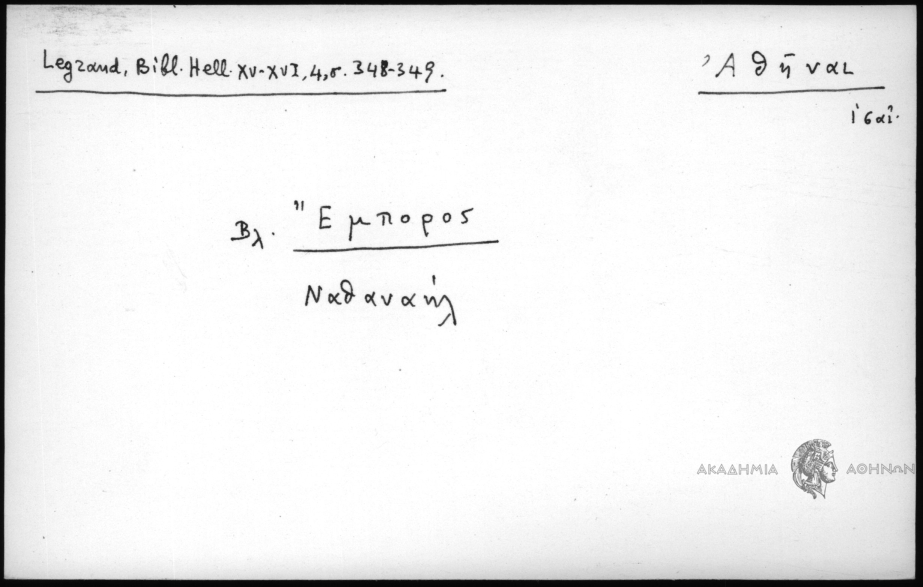 Legrand, Bibl. Hell. XV-XVI, 4, σ. 348-349.
Ἀθῆναι
ἰσαϊ.
Βλ. Ἔμπορος
Ναθαναήλ
ΑΚΑΔΗΜΙΑ ΑΘΗΝΩΝ